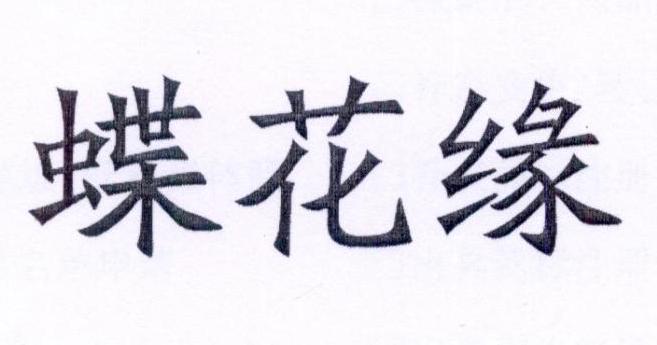 蝶花缘